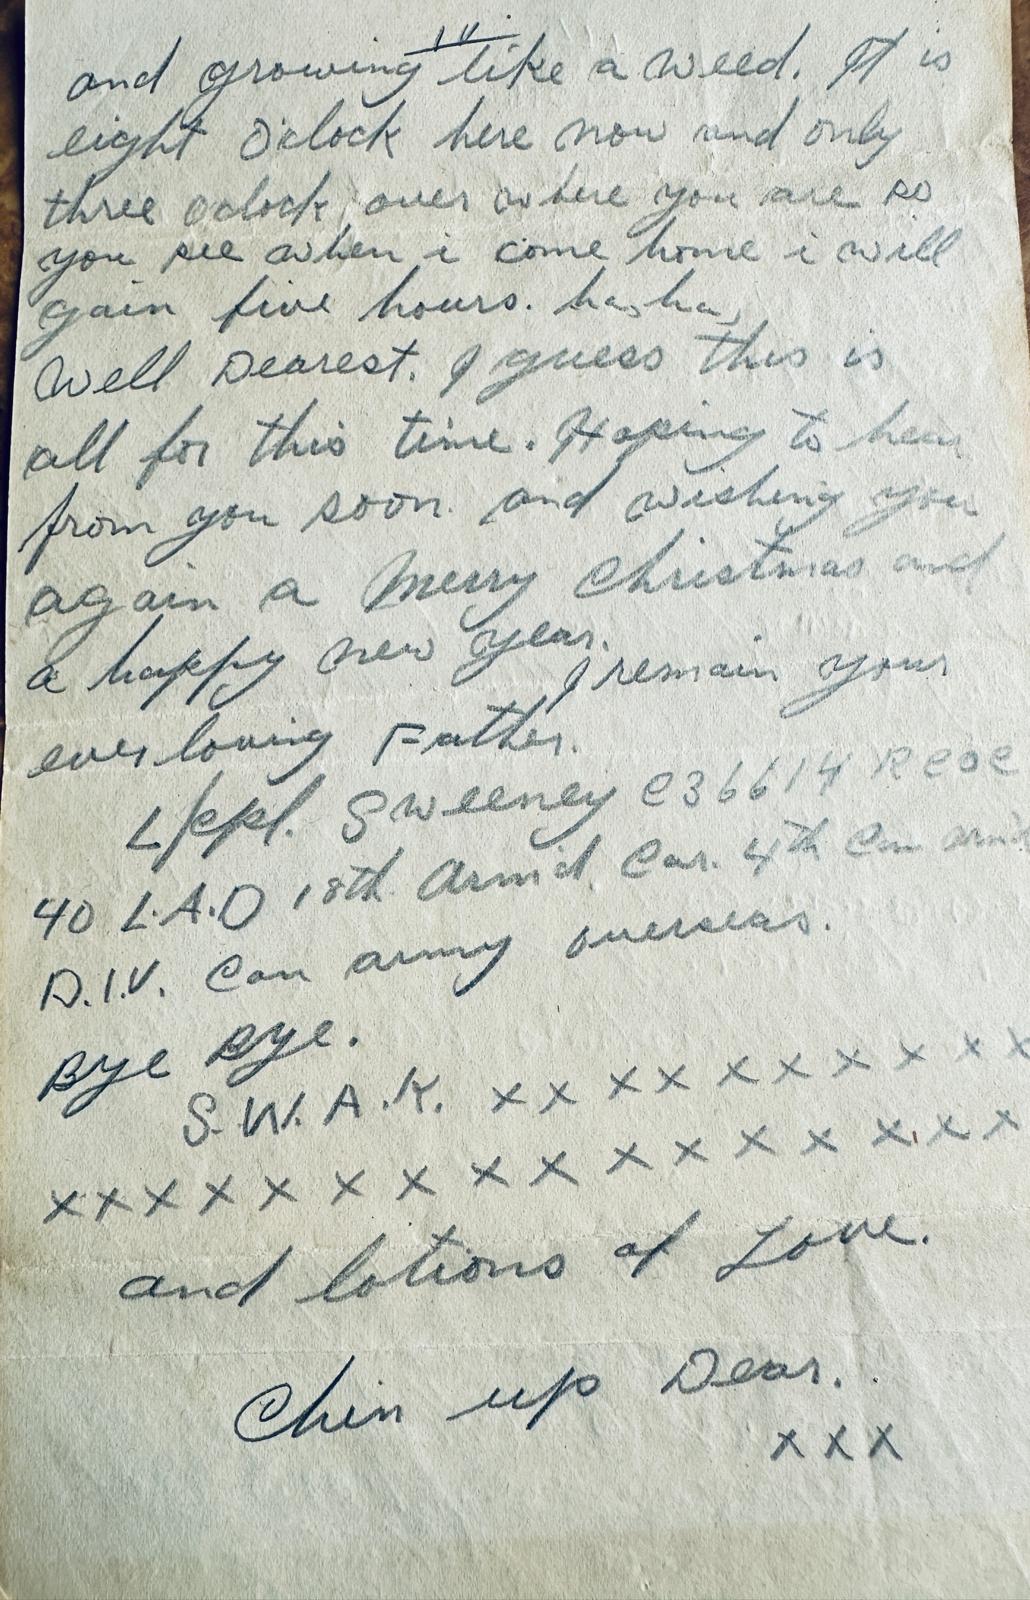 IV
and growing like a weed. It is
eight Oclock here now and only
three oclock over where you are so
you see when i come home i will
gain five hours. ha, ha,
Well Dearest. I guess this is
all for this time. Hoping to hear
from you soon. and wishing you
again a Merry Christmas and
a happy new year.
I remain your
ever loving Father.
L/cpl. Sweeney C36614 RCOC
40 L.A.D 18th Arm'd Car. 4th Can Arm'd
D.I.V. Can army overseas.
Bye Bye.
S.W.A.K. x x x x x x x x x x x
x x x x x x x x x x x x x x x x
and lotions of Love.
Chin up Dear.
x x x